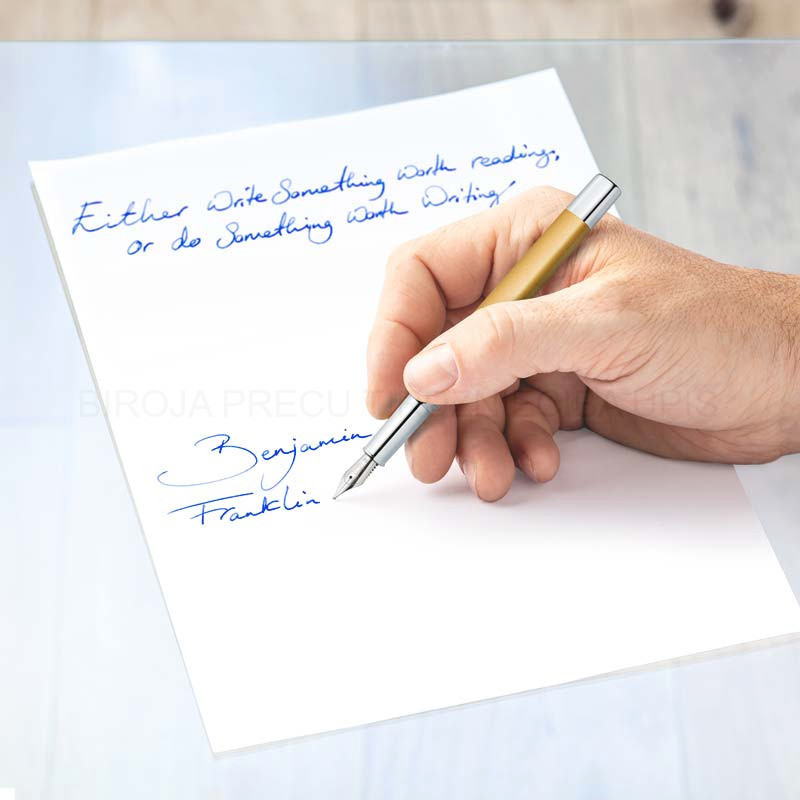 Either write Something worth reading,
or do Something worth writing
BIROJA PRECU
Benjamin
Franklin